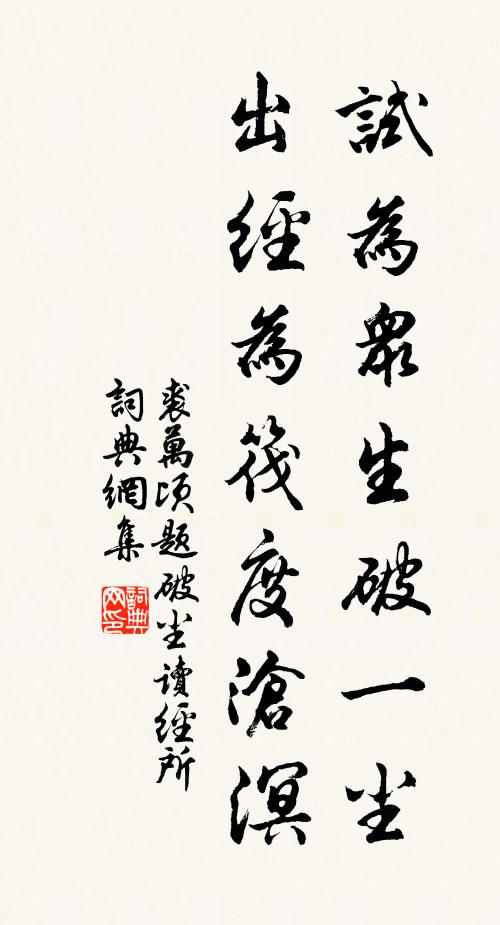 試為眾生破一尘
出經為筏度滄溟
裘萬頃題破尘讀經所
詞典網集
詞典网印